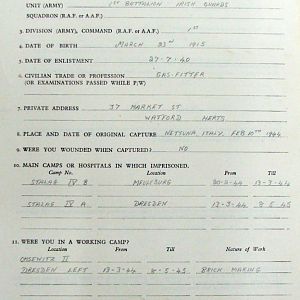 UNIT (ARMY) 1ST BATTALION IRISH GUARDS
SQUADRON (R.A.F. or A.A.F.)
3. DIVISION (ARMY), COMMAND (R.A.F. or A.A.F.) 1ST
4. DATE OF BIRTH MARCH 23RD 1915
5. DATE OF ENLISTMENT 27-7-40
6. CIVILIAN TRADE OR PROFESSION GAS-FITTER
(OR EXAMINATIONS PASSED WHILE P/W)
7. PRIVATE ADDRESS 37 MARKET ST
WATFORD HERTS
8. PLACE AND DATE OF ORIGINAL CAPTURE NETTUNA, ITALY, FEB 10TH 1944
9. WERE YOU WOUNDED WHEN CAPTURED? NO
10. MAIN CAMPS OR HOSPITALS IN WHICH IMPRISONED.
Camp No. Location From Till
STALAG IV B MEULBURG -44 13-3-44
STALAG IV A DRESDEN 13-3-44 8-5-45
11. WERE YOU IN A WORKING CAMP?
Location From Till Nature of Work
II
DRESDEN LEFT 13-3-44 8-5-45 BRICK MAKING